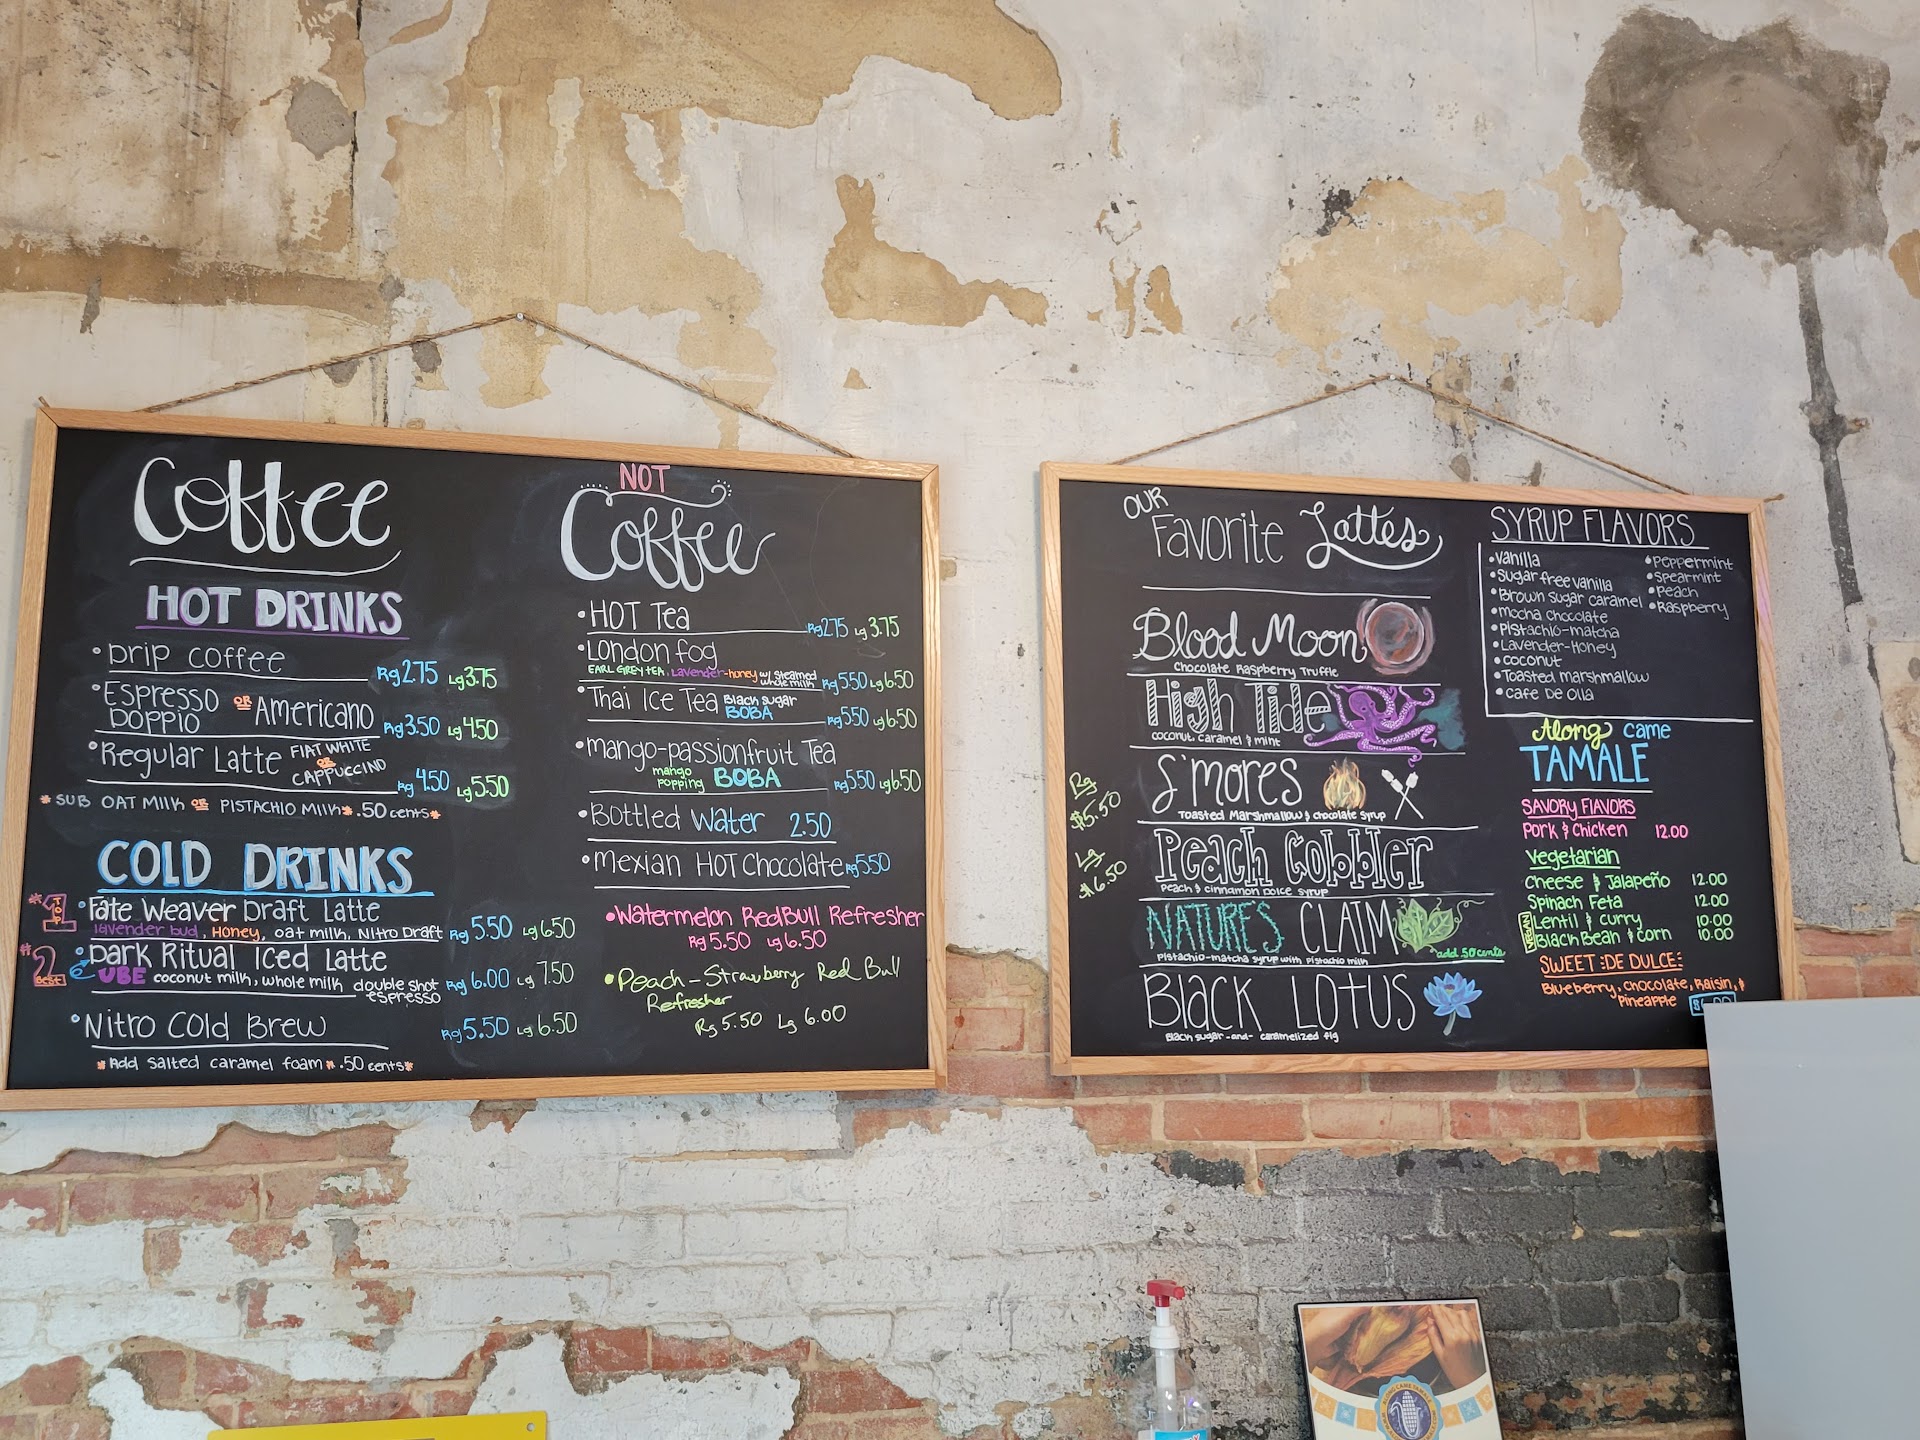 Coffee
HOT DRINKS
•Drip coffee Rg 2.75 Lg 3.75
•Espresso OR Americano
Doppio Rg 3.50 Lg 4.50
•Regular Latte FlAT WHITE
OR
CAPPUCCINO
Rg 4.50 Lg 5.50
*SUB OAT MILK OR PISTACHIO MILK* .50 cents*
COLD DRINKS
#1 TOP
•Fate Weaver Draft Latte
lavender bud, Honey, oat milk, Nitro Draft Rg 5.50 Lg 6.50
#2 BEST
•Dark Ritual Iced Latte
UBE coconut milk, whole milk double shot
espresso Rg 6.00 Lg 7.50
•Nitro Cold Brew Rg 5.50 Lg 6.50
*Add salted caramel foam* .50 cents*
NOT
Coffee
•HOT Tea Rg 2.75 Lg 3.75
•London fog
EARL GREY TEA, Lavender-honey w/ steamed
whole milk Rg 5.50 Lg 6.50
•Thai Ice Tea Black Sugar
BOBA Rg 5.50 Lg 6.50
•mango-passionfruit Tea
mango
popping BOBA Rg 5.50 Lg 6.50
•Bottled Water 2.50
•Mexian HOT Chocolate Rg 5.50
•Watermelon RedBull Refresher
Rg 5.50 Lg 6.50
•Peach-Strawberry Red Bull
Refresher
Rg 5.50 Lg 6.00
OUR
Favorite Lattes
Rg
$5.50
Lg
$6.50
Blood Moon
Chocolate Raspberry Truffle
High Tide
coconut, caramel & mint
S'mores
Toasted Marshmallow & chocolate syrup
Peach Cobbler
Peach & cinnamon Dolce syrup
NATURES CLAIM
Pistachio-matcha syrup with pistachio milk add 50 cents
Black LOTUS
Black sugar -and- caramelized fig
SYRUP FLAVORS
•Vanilla
•Sugar free vanilla
•Brown sugar caramel
•mocha chocolate
•Pistachio-matcha
•Lavender-Honey
•coconut
•Toasted marshmallow
•Cafe De Olla
•Peppermint
•Spearmint
•Peach
•Raspberry
Along came
TAMALE
SAVORY FLAVORS
Pork & Chicken 12.00
Vegetarian
Cheese & Jalapeño 12.00
Spinach Feta 12.00
VEGAN
Lentil & curry 10.00
Black Bean & Corn 10.00
SWEET :DE DULCE:
Blueberry, Chocolate, Raisin, &
Pineapple